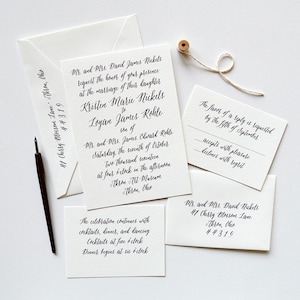 Mr. and Mrs. David James Nickels
request the honor of your presence
at the marriage of their daughter
Kristen Marie Nickels
to
Logan James Roble
son of
Mr. and Mrs. James Edward Roble
Saturday, the seventh of October
two thousand seventeen
at four o'clock in the afternoon
Akron, Ohio
The favor of a reply is requested
by the fifth of September
accepts with pleasure
declines with regret
The celebration continues with
cocktails, dinner, and dancing
Cocktails at five o'clock
Dinner begins at six o'clock
Mr. and Mrs. David Nickels
41 Cherry Blossom Lane
Akron, Ohio
44319
41 Cherry Blossom Lane · Akron, Ohio
44319